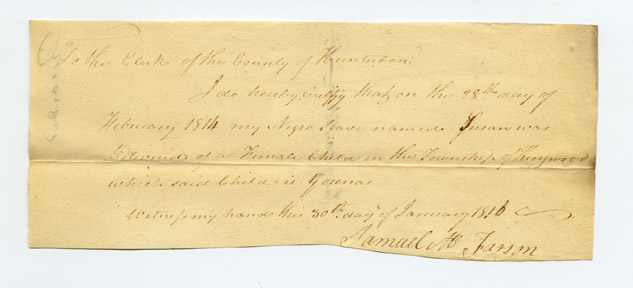 To the Clerk of the County of Hunterdon
I do hereby Certify that on the 28th day of
February 1814 my Negro Slave named Susan was
Delivered of a Female Child in the Township of Kingwood
which said Child is
Witness my hand this 30th day of January 1816
Samuel